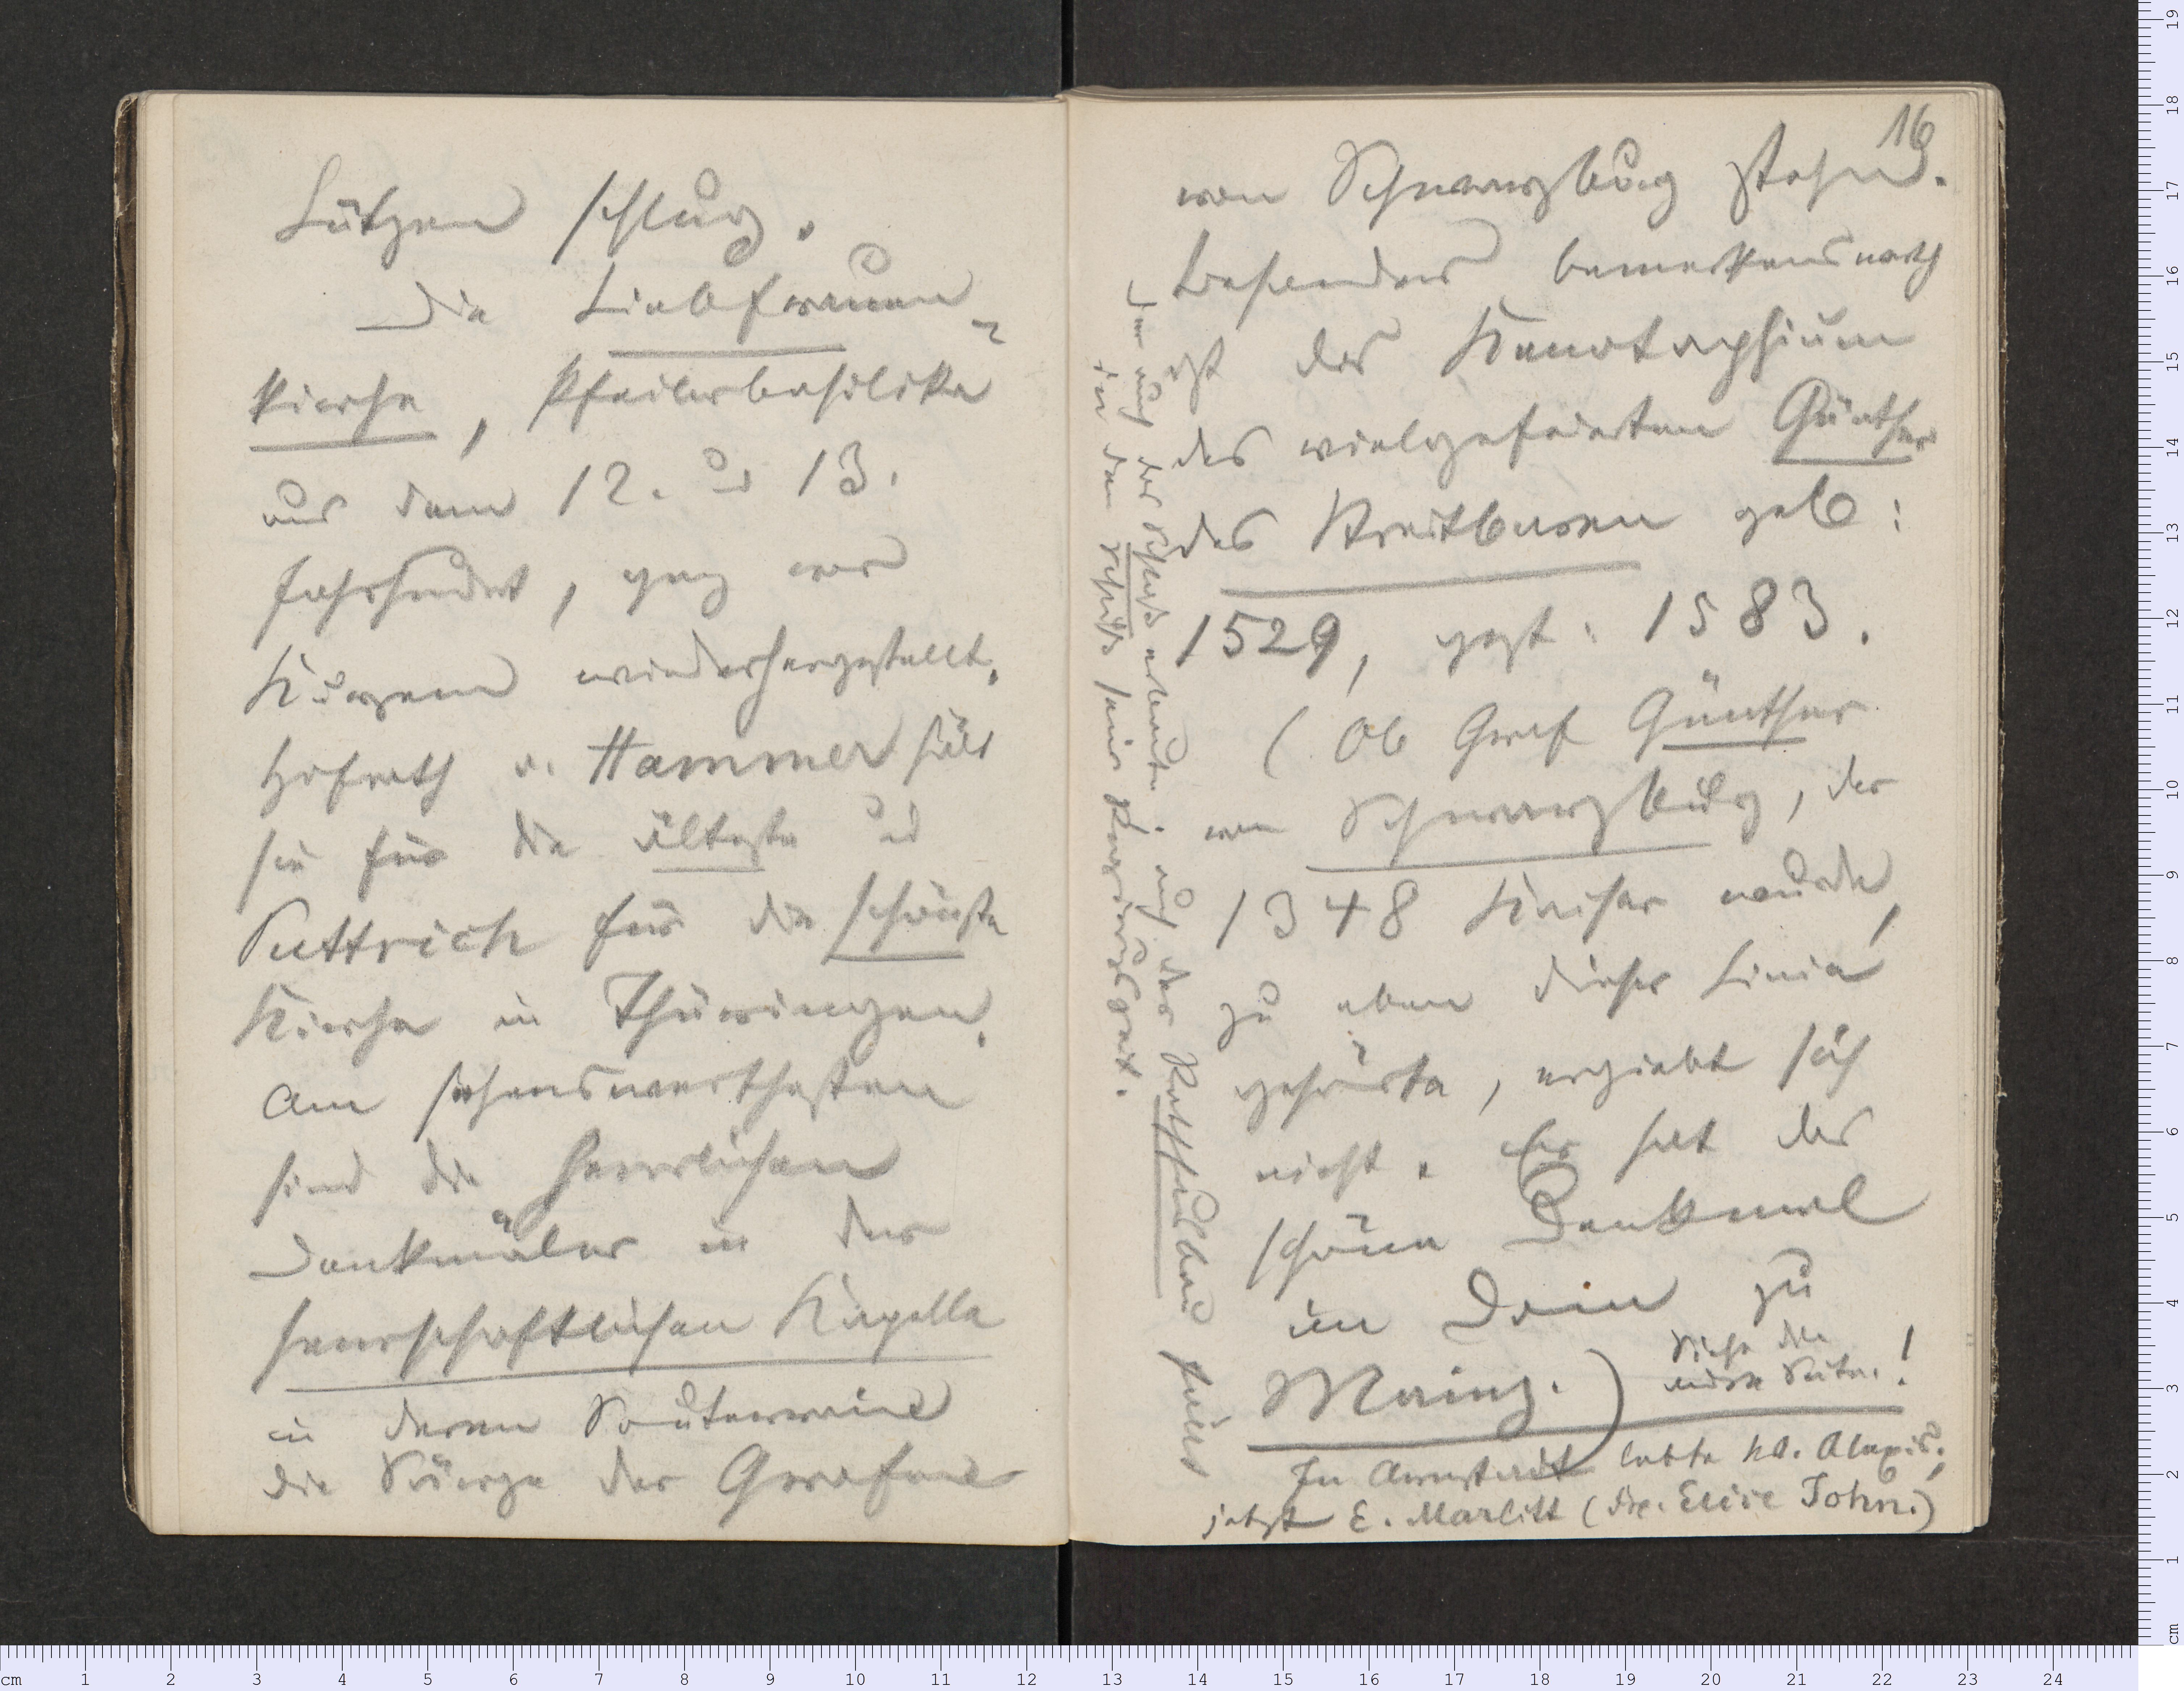 Lützen schlug.
Die Liebfrauen-
kirche, Pfeilerbasilika
aus dem 12. u 13.
Jahrhundert, ganz vor
Kurzem wiederhergestellt.
Hofrath v. Hammer hält
sie für die älteste und
Puttrich für die schönste
Kirche in Thüringen.
Am sehenswerthesten
sind die herrlichen
Denkmäler in der
herrschaftlichen Kapelle
in deren Souterrain
die Särge der Grafen
16
von Schwarzburg stehn.
Besonders bemerkenswerth
ist das Kenotaphium
des vielgefeierten Günther
des Streitbaren geb:
1529, gest: 1583.
(Ob Graf Günther
von Schwarzburg, der
1348 Kaiser wurde,
zu eben dieser Linie
gehörte, ergiebt sich
nicht. Er hat das
schöne Denkmal
im Dom zu
Mainz.)
Siehe die
andre Seite. !
In Arnstadt lebte W. Alexis;
jetzt E. Marlitt (Frl. Elise John.)
der auch das Schloß erbaute. auch der Rathhausbau fällt
in den seine Regierungszeit.